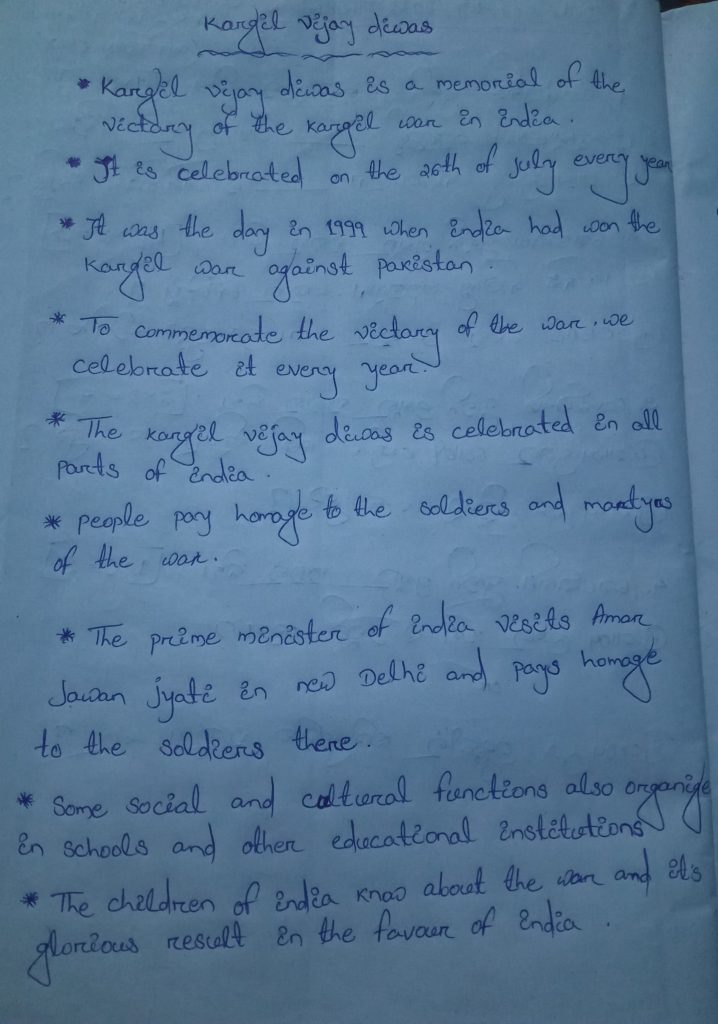 Kargil vijay diwas
* Kargil vijay diwas is a memorial of the
victary of the kargil war in india.
* It is celebrated on the 26th of july every year
* It was the day in 1999 when india had won the
Kargil war against pakistan.
* To commemorate the victary of the war, we
celebrate it every year.
* The kargil vijay diwas is celebrated in all
parts of india.
* people pay homage to the soldiers and martyrs
of the war.
* The prime minister of india visits Amar
Jawan jyati in new Delhi and pays homage
to the soldiers there.
* Some social and cultural functions also organige
in schools and other educational institutions
* The children of india know about the war and it's
glorious result in the favour of india.